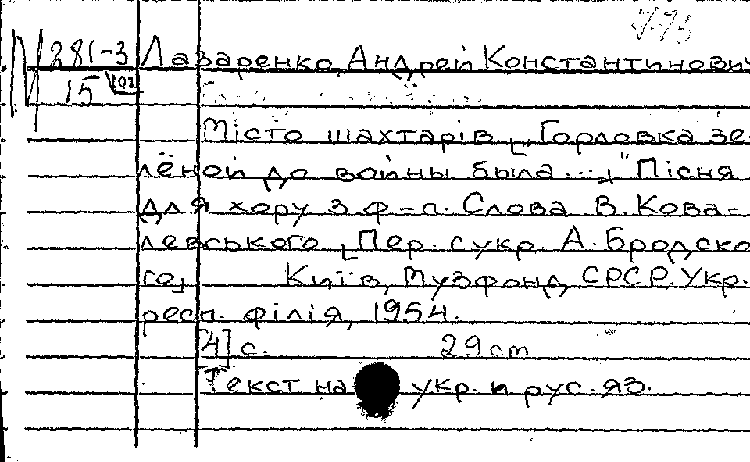 281-3 Лазаренко, Андрей Константинович
15
Місто шахтарів [„Горловка зе-
лёной до войны была...“] Пісня
для хору з ф-п. Слова В. Кова-
левського [Пер. с укр. А. Бродско-
го] Київ, Музфонд СРСР, Укр.
респ. філія, 1954.
[4] с. 29 cm
Текст на укр. и рус. яз.